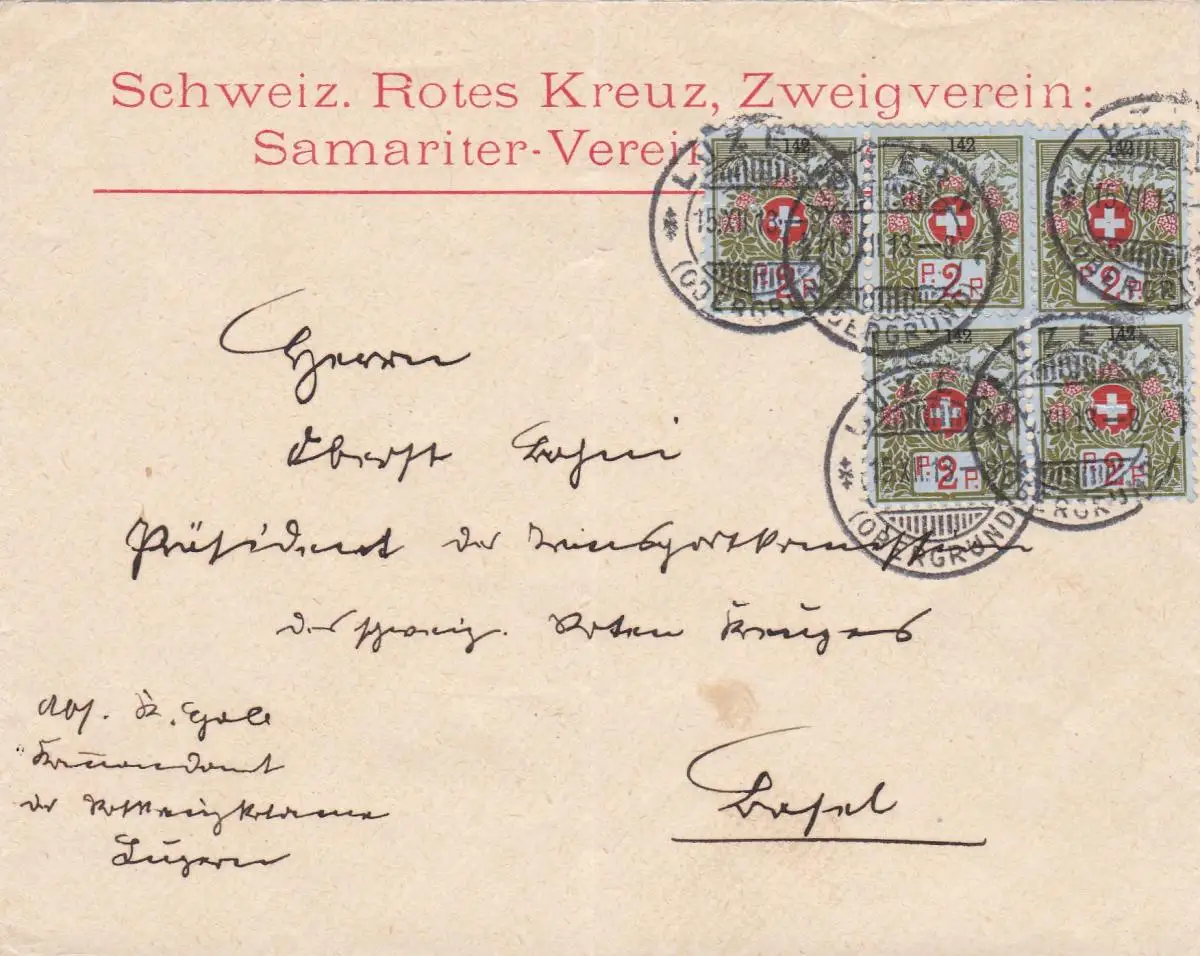 Schweiz. Rotes Kreuz, Zweigverein:
Samariter-Verein
142
142
142
P. 2 P.
P. 2 P.
P. 2 P.
142
142
P. 2 P.
P. 2 P.
LUZERN
15.XII.13
(OBERGRUND)
Herrn
Oberst Bohni
Präsident der Transportkomission
des schweiz. Roten Kreuzes
Basel
Abs.
Kommandant
der Rotkreuzkolonne
Luzern